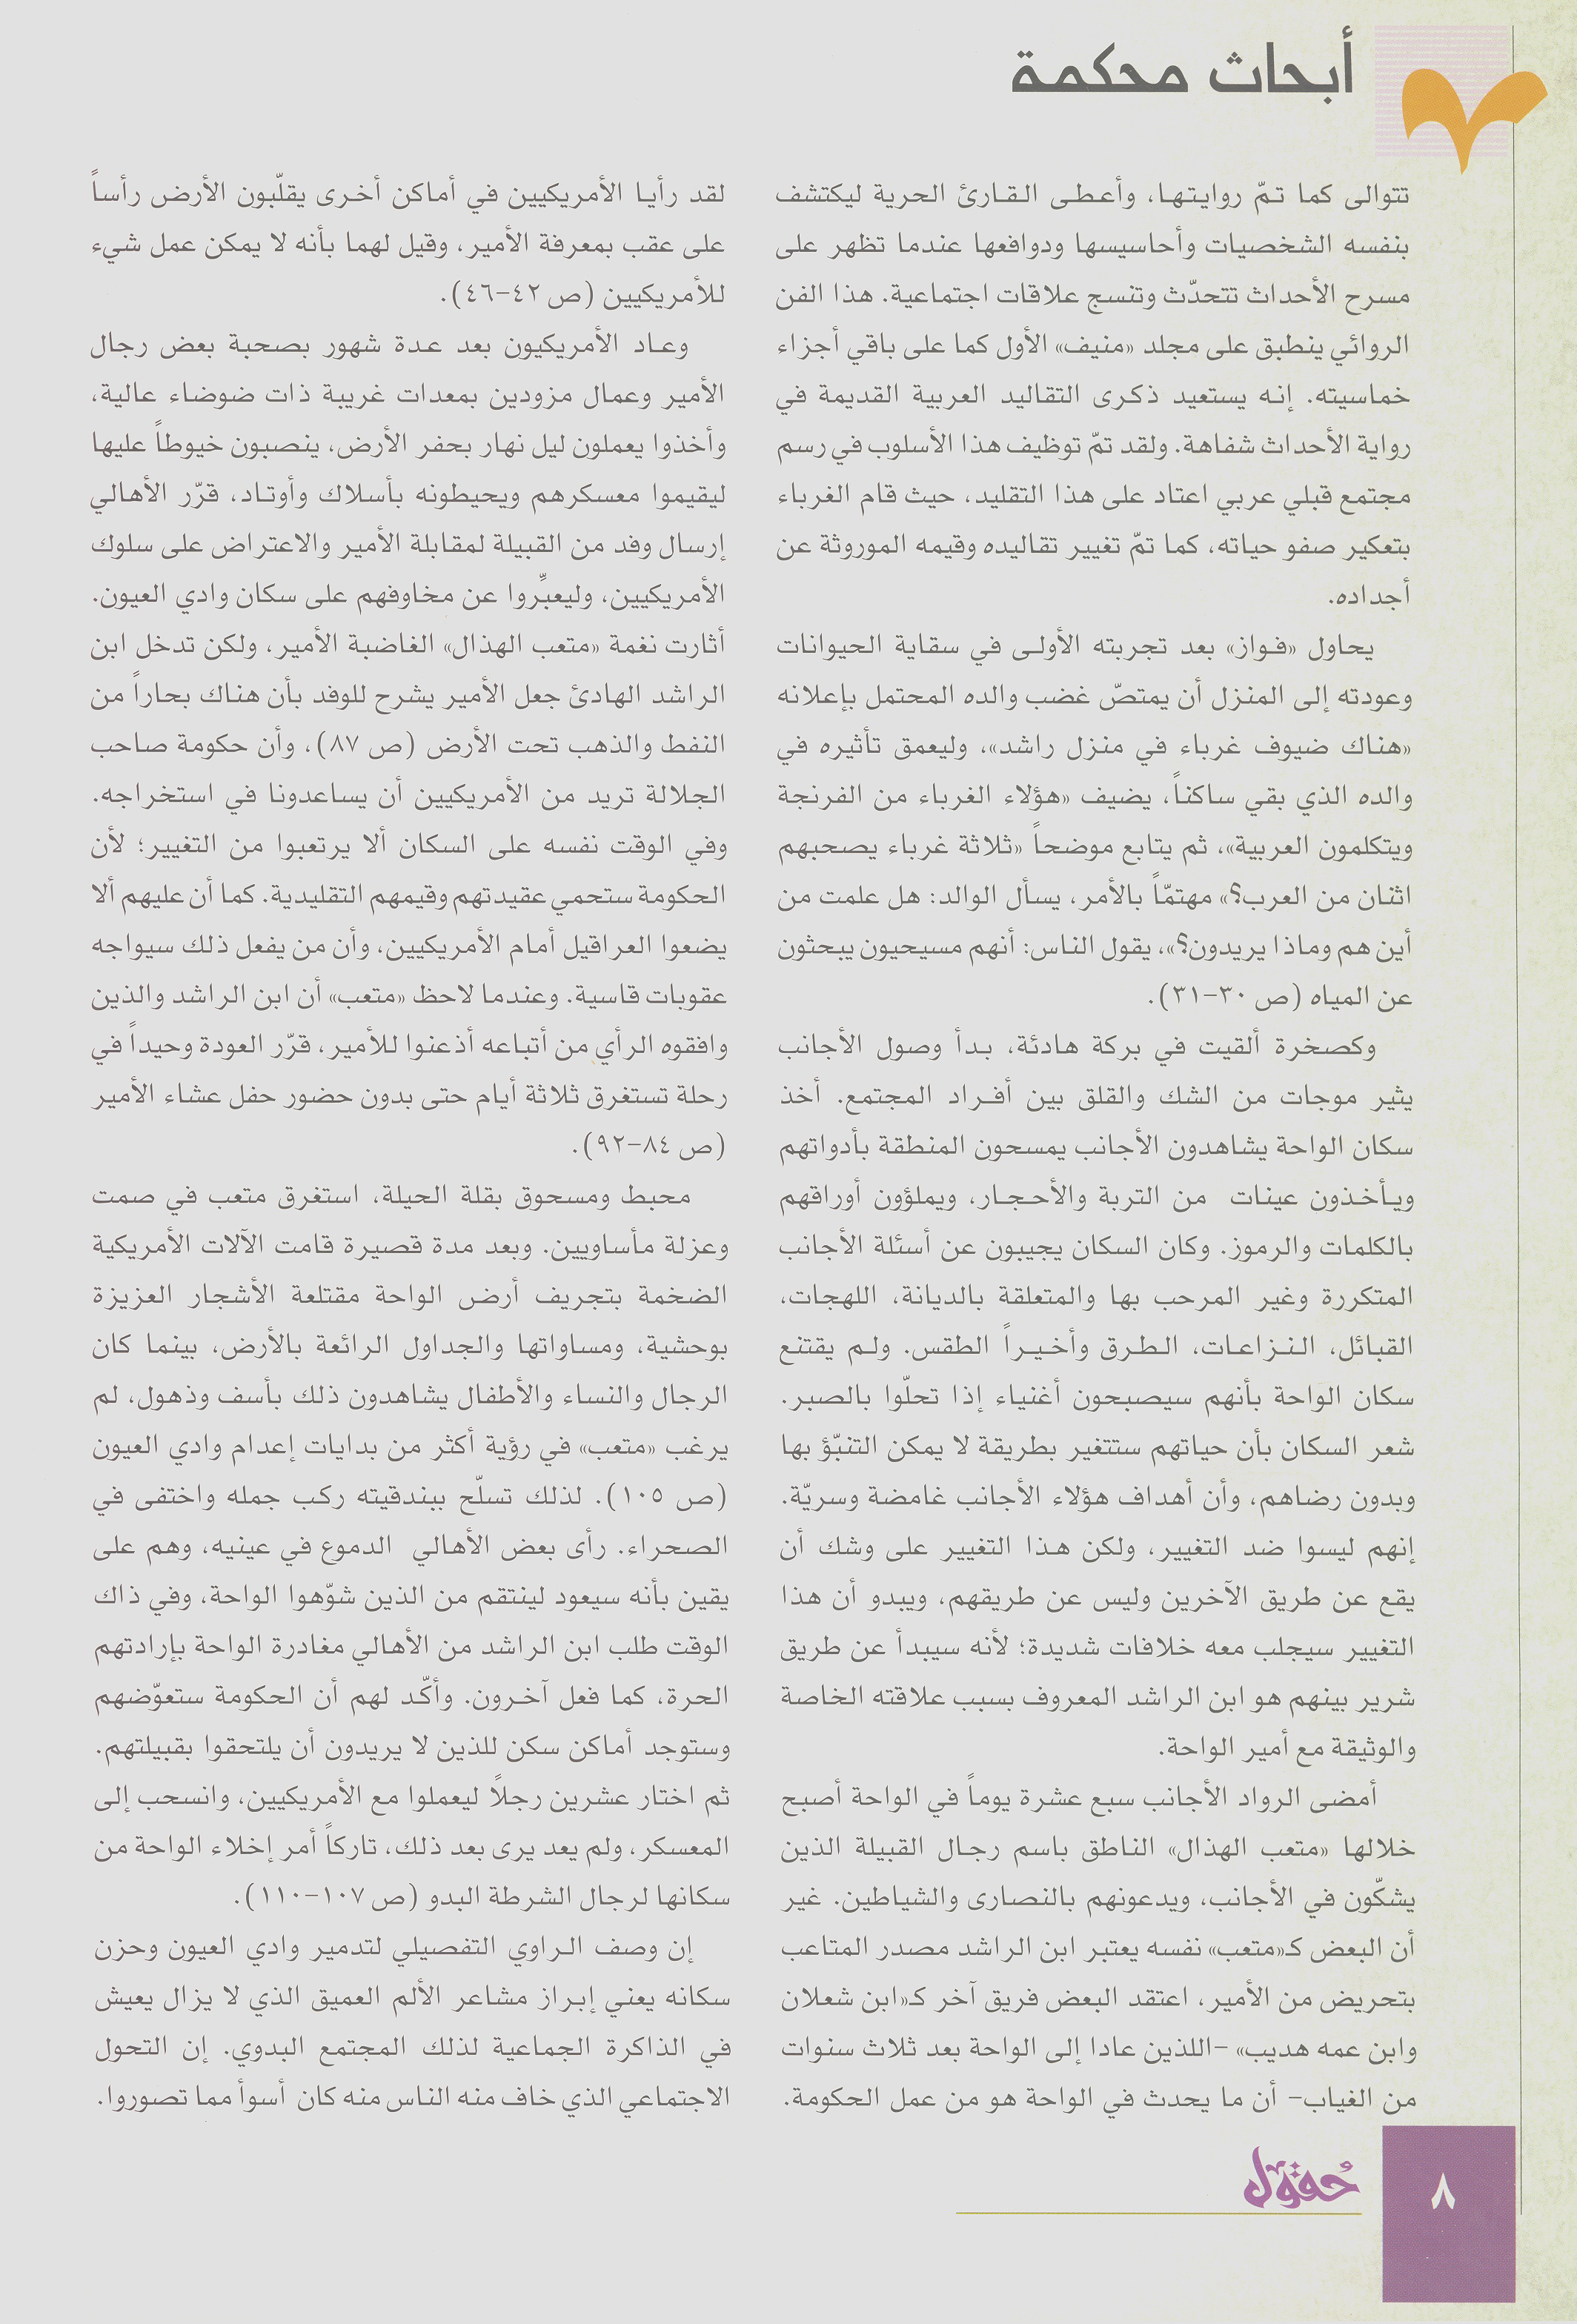 أبحاث محكمة
تتوالى كما تمّ روايتها، وأعطى القارئ الحرية ليكتشف
بنفسه الشخصيات وأحاسيسها ودوافعها عندما تظهر على
مسرح الأحداث تتحدّث وتنسج علاقات اجتماعية. هذا الفن
الروائي ينطبق على مجلد «منيف» الأول كما على باقي أجزاء
خماسيته. إنه يستعيد ذكرى التقاليد العربية القديمة في
رواية الأحداث شفاهة. ولقد تمّ توظيف هذا الأسلوب في رسم
مجتمع قبلي عربي اعتاد على هذا التقليد، حيث قام الغرباء
بتعكير صفو حياته، كما تمّ تغيير تقاليده وقيمه الموروثة عن
أجداده.
يحاول «فواز» بعد تجربته الأولى في سقاية الحيوانات
وعودته إلى المنزل أن يمتصّ غضب والده المحتمل بإعلانه
«هناك ضيوف غرباء في منزل راشد»، وليعمق تأثيره في
والده الذي بقي ساكناً، يضيف «هؤلاء الغرباء من الفرنجة
ويتكلمون العربية»، ثم يتابع موضحاً «ثلاثة غرباء يصحبهم
اثنان من العرب؟» مهتمّاً بالأمر، يسأل الوالد: هل علمت من
أين هم وماذا يريدون؟»، يقول الناس: أنهم مسيحيون يبحثون
عن المياه (ص ٣٠-٣١).
وكصخرة ألقيت في بركة هادئة، بدأ وصول الأجانب
يثير موجات من الشك والقلق بين أفراد المجتمع. أخذ
سكان الواحة يشاهدون الأجانب يمسحون المنطقة بأدواتهم
ويأخذون عينات من التربة والأحجار، ويملؤون أوراقهم
بالكلمات والرموز. وكان السكان يجيبون عن أسئلة الأجانب
المتكررة وغير المرحب بها والمتعلقة بالديانة، اللهجات،
القبائل، النزاعات، الطرق وأخيراً الطقس. ولم يقتنع
سكان الواحة بأنهم سيصبحون أغنياء إذا تحلّوا بالصبر.
شعر السكان بأن حياتهم ستتغير بطريقة لا يمكن التنبّؤ بها
وبدون رضاهم، وأن أهداف هؤلاء الأجانب غامضة وسريّة.
إنهم ليسوا ضد التغيير، ولكن هذا التغيير على وشك أن
يقع عن طريق الآخرين وليس عن طريقهم، ويبدو أن هذا
التغيير سيجلب معه خلافات شديدة؛ لأنه سيبدأ عن طريق
شرير بينهم هو ابن الراشد المعروف بسبب علاقته الخاصة
والوثيقة مع أمير الواحة.
أمضى الرواد الأجانب سبع عشرة يوماً في الواحة أصبح
خلالها «متعب الهذال» الناطق باسم رجال القبيلة الذين
يشكّون في الأجانب، ويدعونهم بالنصارى والشياطين. غير
أن البعض كـ«متعب» نفسه يعتبر ابن الراشد مصدر المتاعب
بتحريض من الأمير، اعتقد البعض فريق آخر كـ«ابن شعلان
وابن عمه هديب» -اللذين عادا إلى الواحة بعد ثلاث سنوات
من الغياب- أن ما يحدث في الواحة هو من عمل الحكومة.
لقد رأيا الأمريكيين في أماكن أخرى يقلّبون الأرض رأساً
على عقب بمعرفة الأمير، وقيل لهما بأنه لا يمكن عمل شيء
للأمريكيين (ص ٤٢-٤٦).
وعاد الأمريكيون بعد عدة شهور بصحبة بعض رجال
الأمير وعمال مزودين بمعدات غريبة ذات ضوضاء عالية،
وأخذوا يعملون ليل نهار بحفر الأرض، ينصبون خيوطاً عليها
ليقيموا معسكرهم ويحيطونه بأسلاك وأوتاد، قرّر الأهالي
إرسال وفد من القبيلة لمقابلة الأمير والاعتراض على سلوك
الأمريكيين، وليعبِّروا عن مخاوفهم على سكان وادي العيون.
أثارت نغمة «متعب الهذال» الغاضبة الأمير، ولكن تدخل ابن
الراشد الهادئ جعل الأمير يشرح للوفد بأن هناك بحاراً من
النفط والذهب تحت الأرض (ص ٨٧)، وأن حكومة صاحب
الجلالة تريد من الأمريكيين أن يساعدونا في استخراجه.
وفي الوقت نفسه على السكان ألا يرتعبوا من التغيير؛ لأن
الحكومة ستحمي عقيدتهم وقيمهم التقليدية. كما أن عليهم ألا
يضعوا العراقيل أمام الأمريكيين، وأن من يفعل ذلك سيواجه
عقوبات قاسية. وعندما لاحظ «متعب» أن ابن الراشد والذين
وافقوه الرأي من أتباعه أذعنوا للأمير، قرّر العودة وحيداً في
رحلة تستغرق ثلاثة أيام حتى بدون حضور حفل عشاء الأمير
(ص ٨٤-٩٢).
محبط ومسحوق بقلة الحيلة، استغرق متعب في صمت
وعزلة مأساويين. وبعد مدة قصيرة قامت الآلات الأمريكية
الضخمة بتجريف أرض الواحة مقتلعة الأشجار العزيزة
بوحشية، ومساواتها والجداول الرائعة بالأرض، بينما كان
الرجال والنساء والأطفال يشاهدون ذلك بأسف وذهول، لم
يرغب «متعب» في رؤية أكثر من بدايات إعدام وادي العيون
(ص ١٠٥). لذلك تسلّح ببندقيته ركب جمله واختفى في
الصحراء. رأى بعض الأهالي الدموع في عينيه، وهم على
يقين بأنه سيعود لينتقم من الذين شوّهوا الواحة، وفي ذاك
الوقت طلب ابن الراشد من الأهالي مغادرة الواحة بإرادتهم
الحرة، كما فعل آخرون. وأكّد لهم أن الحكومة ستعوّضهم
وستوجد أماكن سكن للذين لا يريدون أن يلتحقوا بقبيلتهم.
ثم اختار عشرين رجلاً ليعملوا مع الأمريكيين، وانسحب إلى
المعسكر، ولم يعد يرى بعد ذلك، تاركاً أمر إخلاء الواحة من
سكانها لرجال الشرطة البدو (ص ١٠٧-١١٠).
إن وصف الراوي التفصيلي لتدمير وادي العيون وحزن
سكانه يعني إبراز مشاعر الألم العميق الذي لا يزال يعيش
في الذاكرة الجماعية لذلك المجتمع البدوي. إن التحول
الاجتماعي الذي خاف منه الناس منه كان أسوأ مما تصوروا.
حُقول
٨